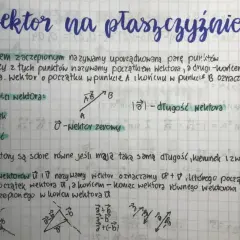 ektor na płaszczyźnie
em zaczepionym nazywamy uporządkowaną parę punktów
y z tych punktów nazywamy początkiem wektora, a drugi - końcem
. wektor o początku w punkcie A i końcu w punkcie B oznacz
ości wektora:
AB B
A
|v⃗| - długość wektora
0⃗ - wektor zerowy
tory są sobie równe jeśli mają taką samą długość, kierunek i zw
wektorów u⃗ i v⃗ nazywamy wektor oznaczamy u⃗ + v⃗, którego począ
oczątek wektora u⃗, a końcem - koniec wektora równego wektorowi
zepionego w końcu wektora u⃗